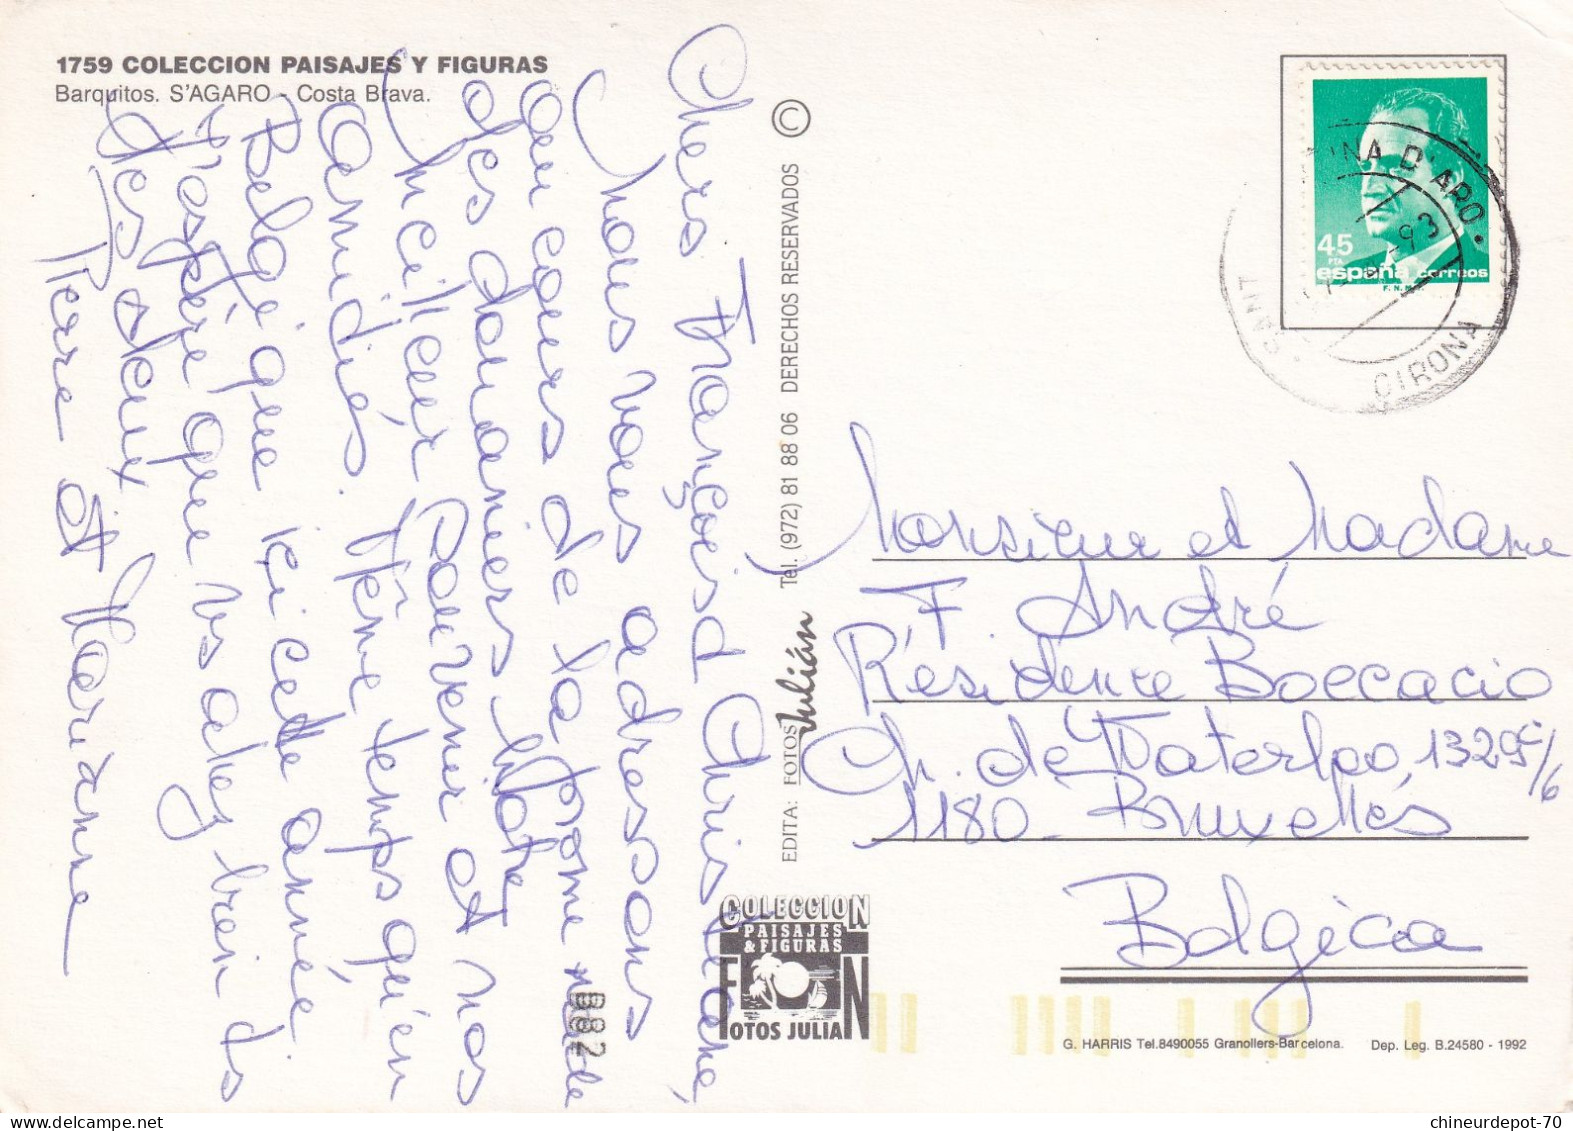 1759 COLECCION PAISAJES Y FIGURAS
Barquitos. S'AGARO - Costa Brava.
Chers Françoise et Christiane,
Nous vous adressons
au cours de la promenade
des douaniers notre
meilleur souvenir et nos
amitiés. Même temps qu'en
Belgique ici cette année
J'espère que vs allez bien ts
les deux
Pierre et Marianne
©
EDITA: FOTOS Julián Tel. (972) 81 88 06 DERECHOS RESERVADOS
B82
COLECCION
PAISAJES
& FIGURAS
FOTOS JULIAN
45
PTA
españa correos
F.N.M.T.
SANT
INA D'ARO
93
GIRONA
Monsieur et Madame
F. André
Résidence Boccacio
Ch. de Waterloo, 1329
1180 - Bruxelles
Belgica
G. HARRIS Tel.8490055 Granollers-Barcelona. Dep. Leg. B.24580 - 1992
chineurdepot-70